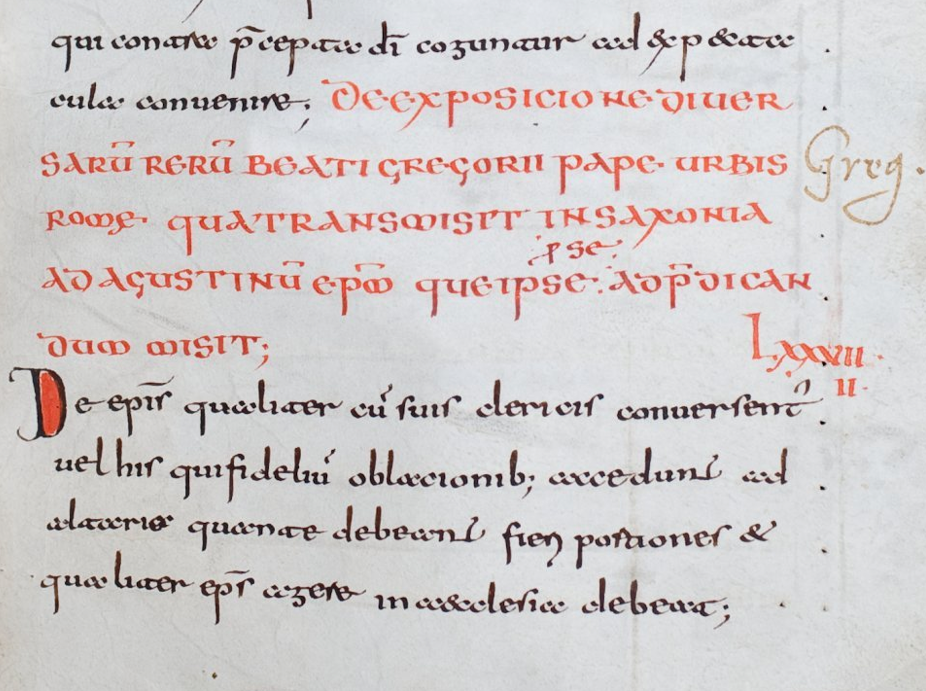 qui contra p̄cepta dī cogunatur ad expectata
cula conuenire; DE EXPOSICIONE DIUER
SARŪ RERŪ BEATI GREGORII PAPE URBIS
Greg.
ROMĘ QUA TRANSMISIT IN SAXONIA
p se
AD AGUSTINŪ EPM̄ QUE IPSE AD P̄DICAN
DUM MISIT;
LXXXII
II
De epīs qualiter cū suis clericis conuersent̄
uel his qui fideliū oblacionib; accedunt ad
altaria quante debeant fieri portiones &
qualiter ep̄s agere in aecclesia debeat;